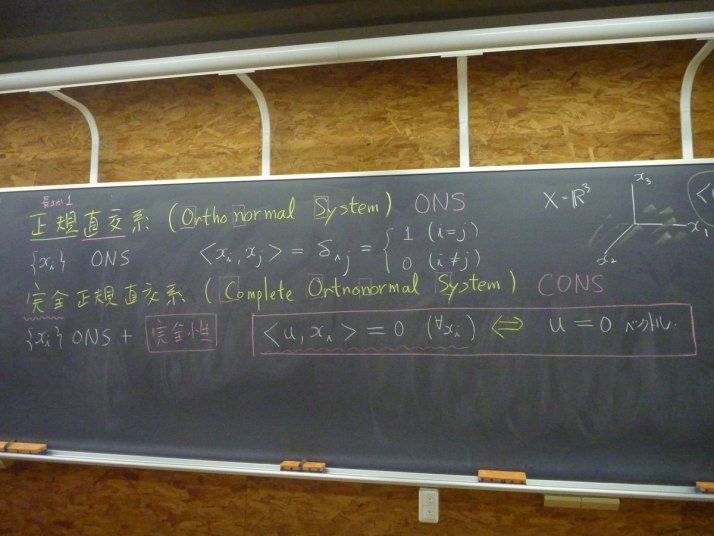 長さが1
正規直交系 (Orthonormal System) ONS
{xᵢ} ONS <xᵢ, xⱼ> = δᵢⱼ = { 1 (i=j)
0 (i≠j)
完全正規直交系 (Complete Orthonormal System) CONS
{xᵢ} ONS + 完全性 <u, xᵢ> = 0 (∀xᵢ) ⇔ u = 0 ベクトル.
X = ℝ³
x₃
x₁
x₂